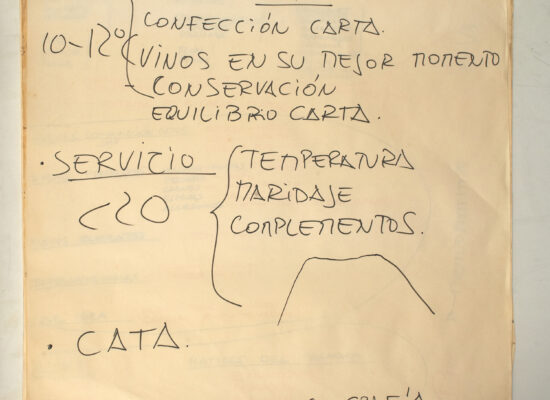 CONFECCIÓN CARTA.
10-12º VINOS EN SU MEJOR MOMENTO
- CONSERVACIÓN
EQUILIBRIO CARTA.
· SERVICIO
<20
TEMPERATURA
MARIDAJE
COMPLEMENTOS.
· CATA.